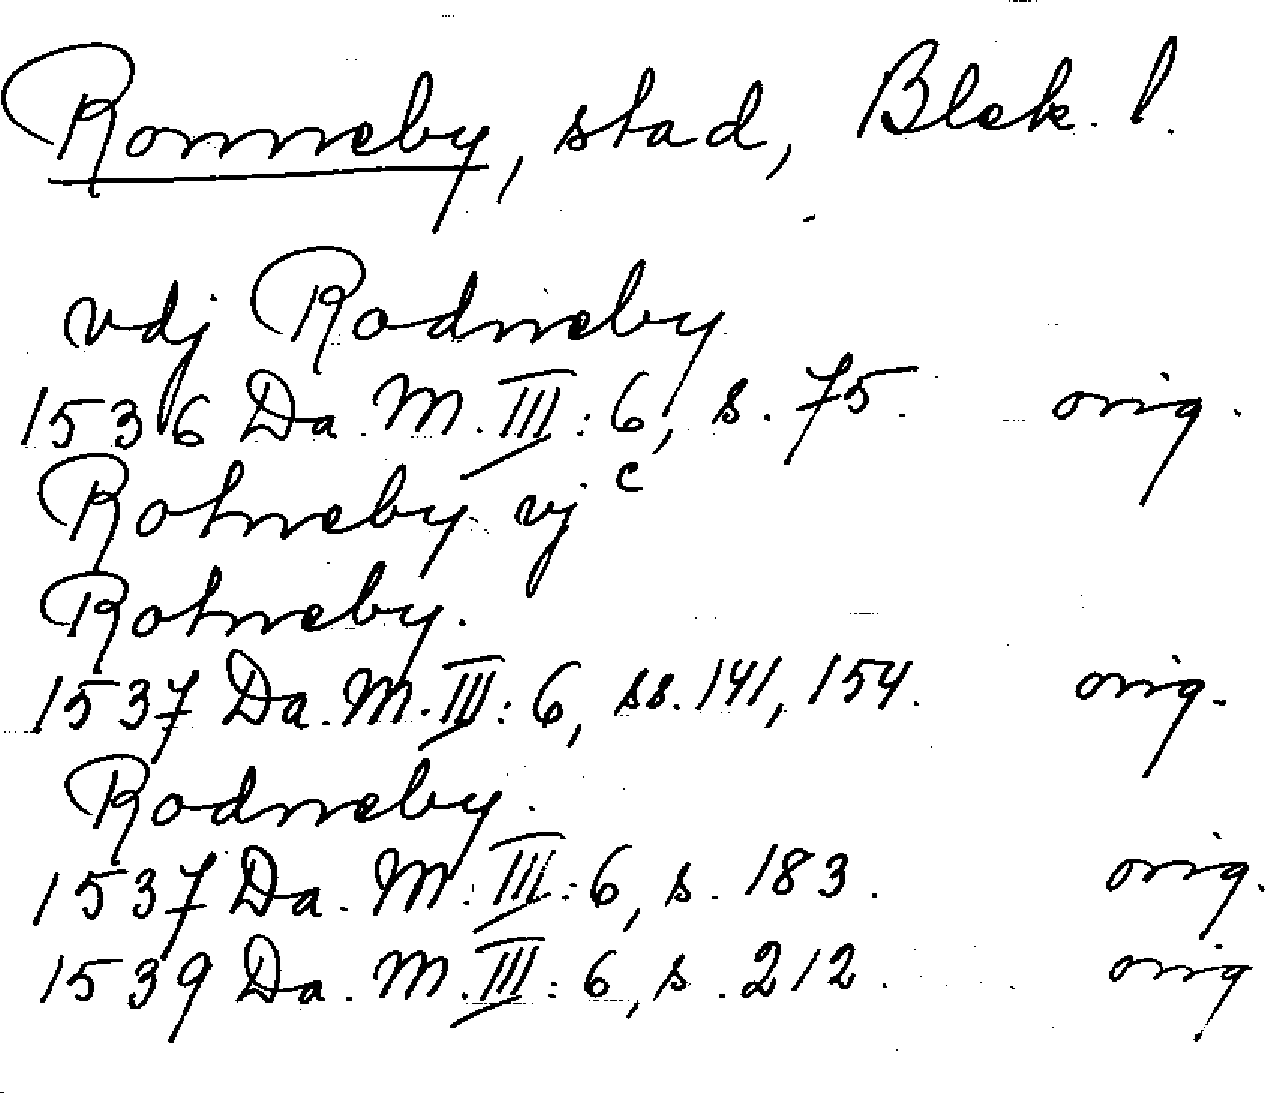 Ronneby, stad, Blek. l.
vdj Rodneby
1536 Da. M. III: 6, s. 75. orig.
Rotneby vj c
Rotneby.
1537 Da. M. III: 6, ss. 141, 154. orig.
Rodneby.
1537 Da. M. III: 6, s. 183. orig.
1539 Da. M. III: 6, s. 212. orig